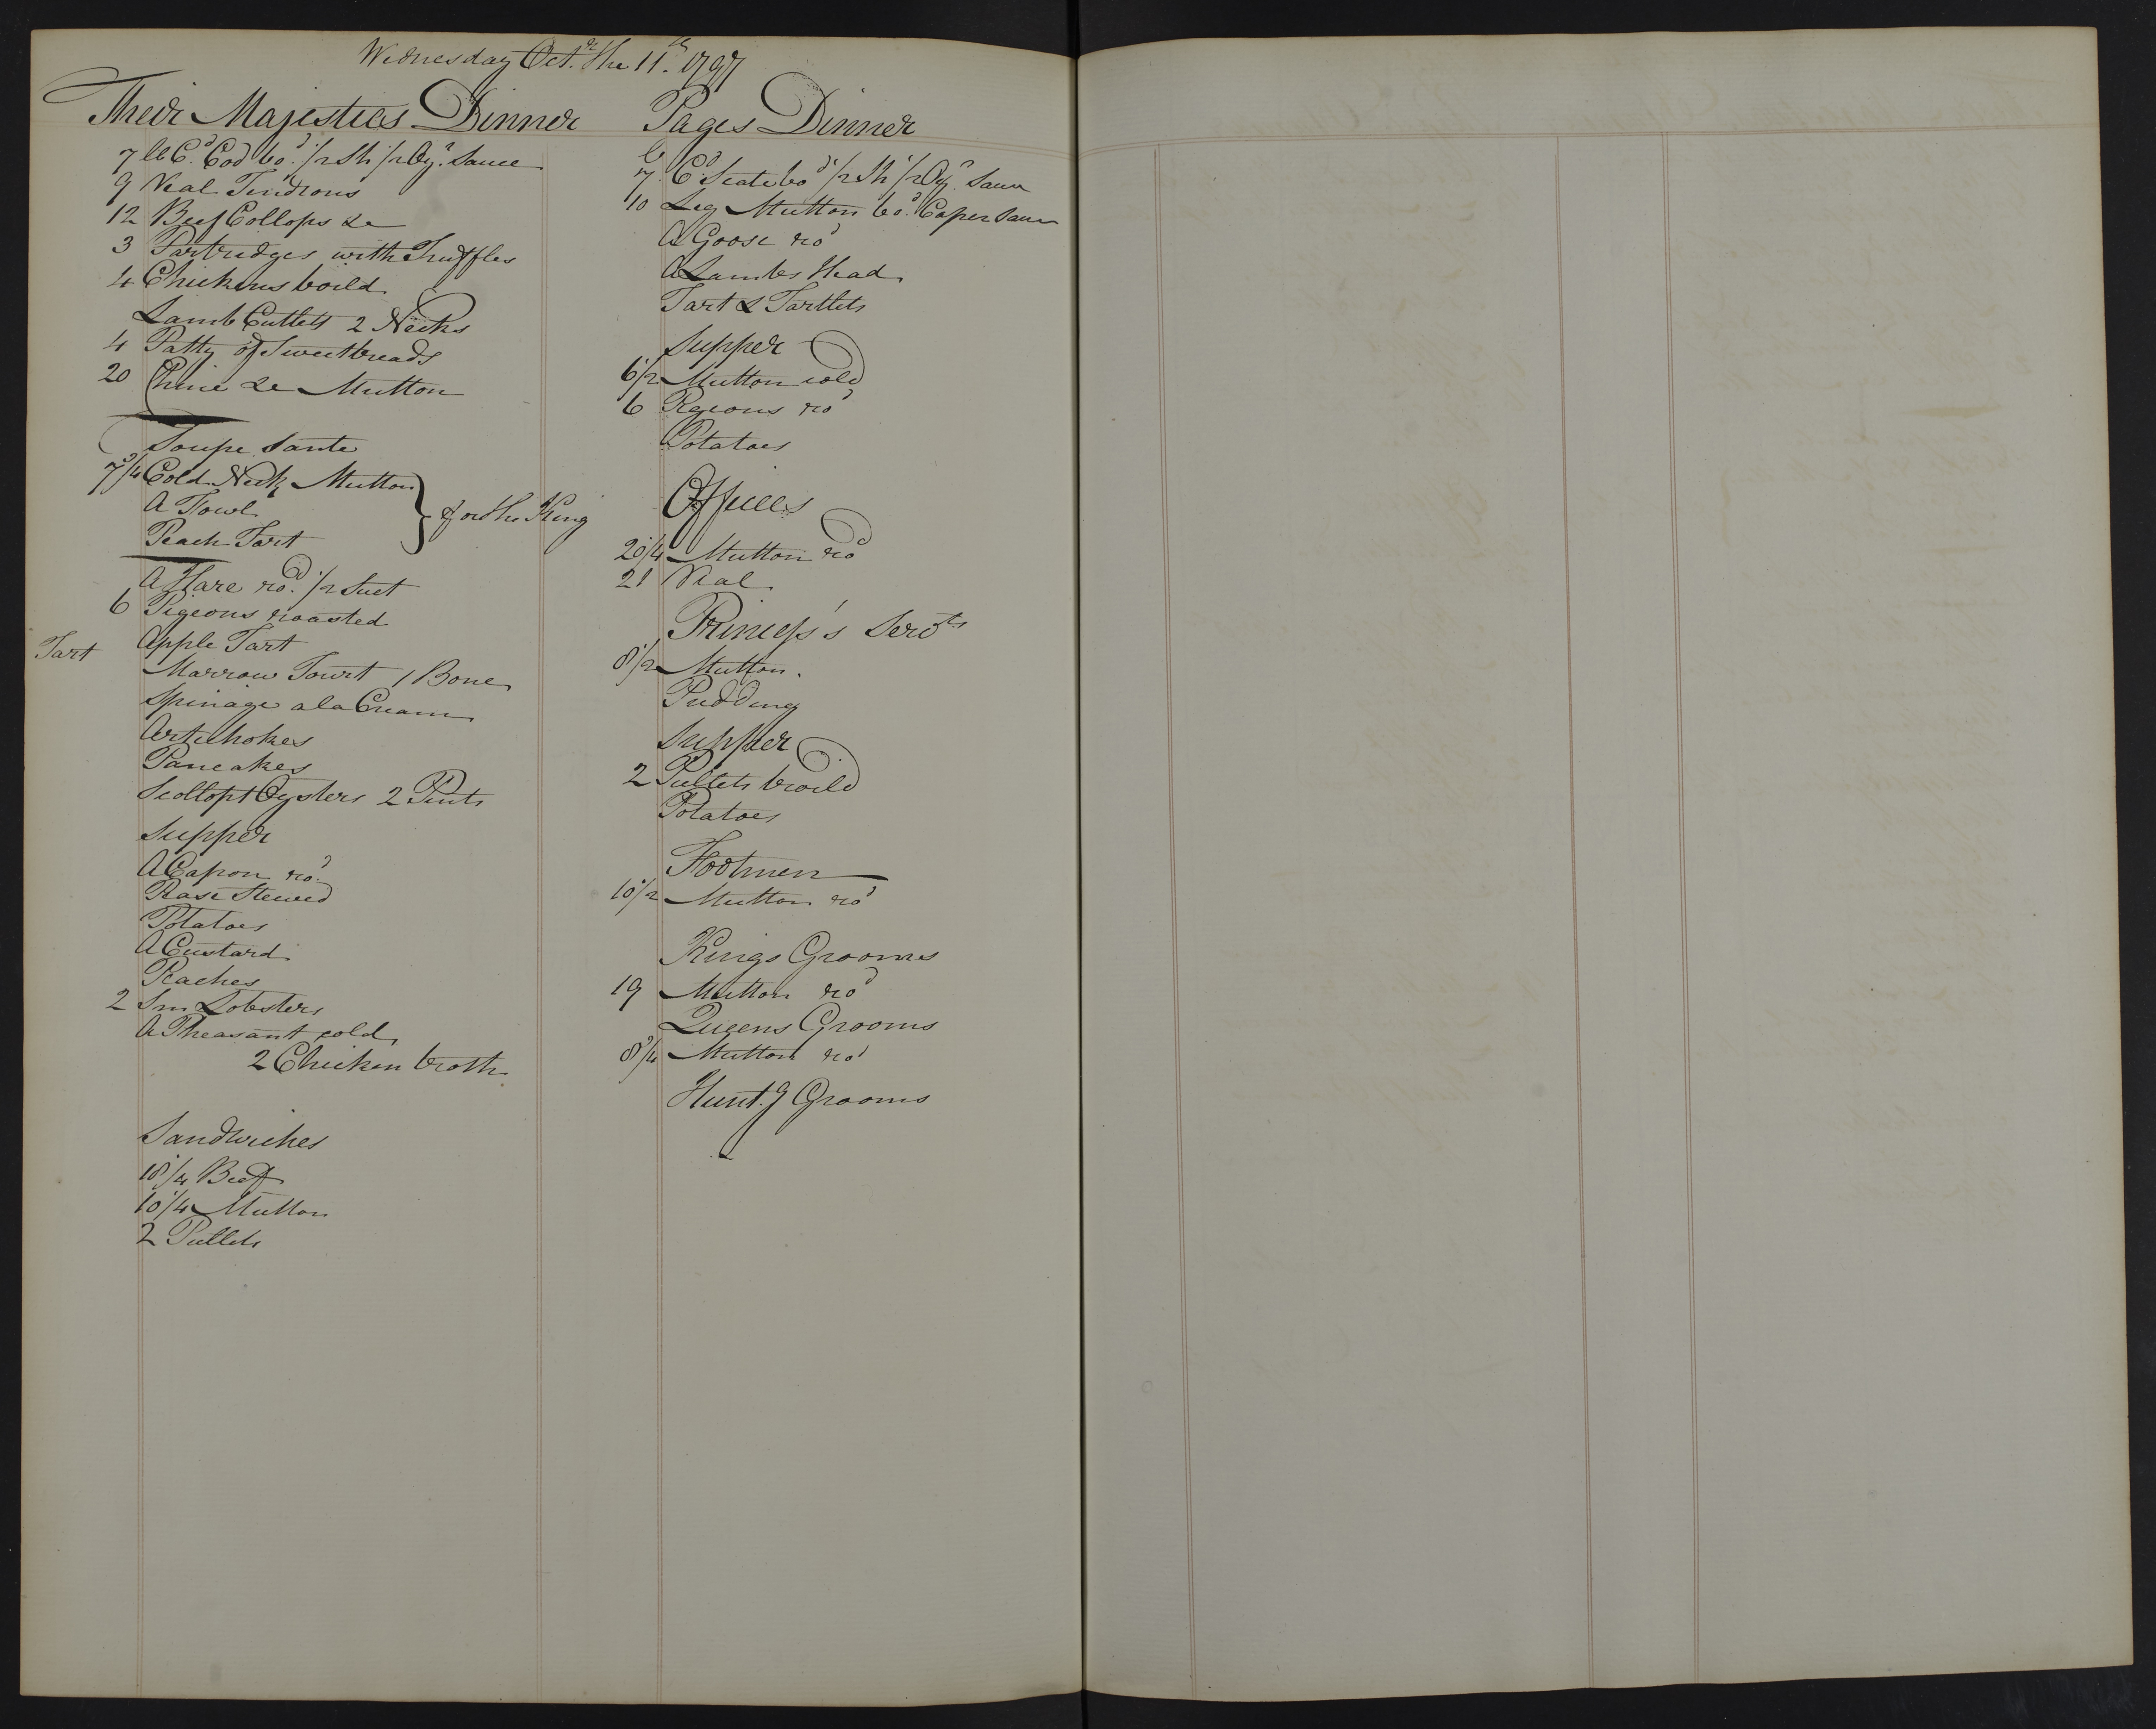 Wednesday Oct.r the 11.th 1797
Their Majesties Dinner
7 lb C.d Cod bo.d 1/2 Sh 1/2 Oy.r Sauce
9 Veal Tendrons
12 Beef Collops &c
3 Partridges with Truffles
4 Chickens boild
Lamb Cutlets 2 Necks
4 Patty of Sweetbreads
20 Chine &c Mutton
Soupe Sante
7 3/4 Cold Neck Mutton
A Fowl
for the King
Peach Tart
A Hare ro.d 1/2 Suet
6 Pigeons roasted
Tart Apple Tart
Marrow Tourt 1 Bone
Spinage a la Cream
Artichokes
Pancakes
Scollopt Oysters 2 Pints
Supper
A Capon ro.d
Pase Stewed
Potatoes
A Custard
Peaches
2 Sm Lobsters
A Pheasant cold
2 Chicken broth
Sandwiches
18 1/4 Beef
10 1/4 Mutton
2 Pullets
Pages Dinner
lb
7 C.d Scate bo.d 1/2 Sh 1/2 Oy.r Sauce
10 Leg Mutton bo.d Caper Sauce
A Goose ro.d
A Lambs Head
Tart & Tartlets
Supper
6 1/2 Mutton cold
6 Pigeons ro.d
Potatoes
Offices
20 1/4 Mutton ro.d
21 Veal
Princess's Serv.ts
8 1/2 Mutton.
Pudding
Supper
2 Pullets broild
Potatoes
Footmen
10 1/2 Mutton ro.d
Kings Grooms
19 Mutton ro.d
Queens Grooms
8 3/4 Mutton ro.d
Hunt.g Grooms